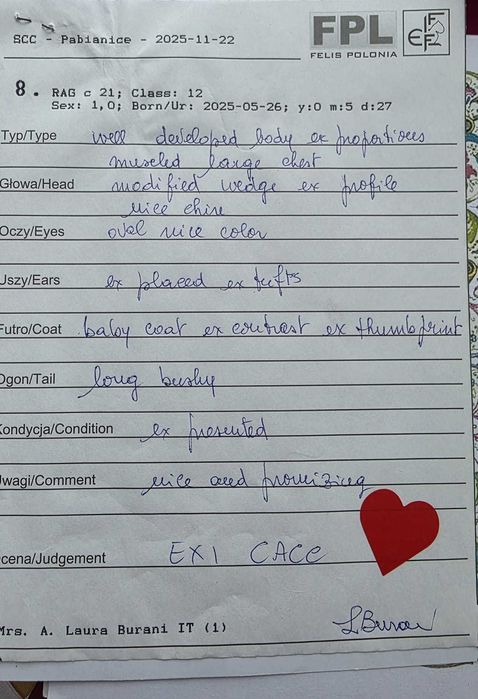 SCC - Pabianice - 2025-11-22
FPL
FELIS POLONIA
FIFe
8. RAG c 21; Class: 12
Sex: 1,0; Born/Ur: 2025-05-26; y:0 m:5 d:27
Typ/Type well developed body ex proportions
muscled large chest
Głowa/Head modified wedge ex profile
nice chin
Oczy/Eyes oval nice color
Uszy/Ears ex placed ex tufts
Futro/Coat baby coat ex contrast ex thumbprint
Ogon/Tail long bushy
Kondycja/Condition ex presented
Uwagi/Comment nice and promizing
cena/Judgement EX1 CACC
Mrs. A. Laura Burani IT (1)
LBurani